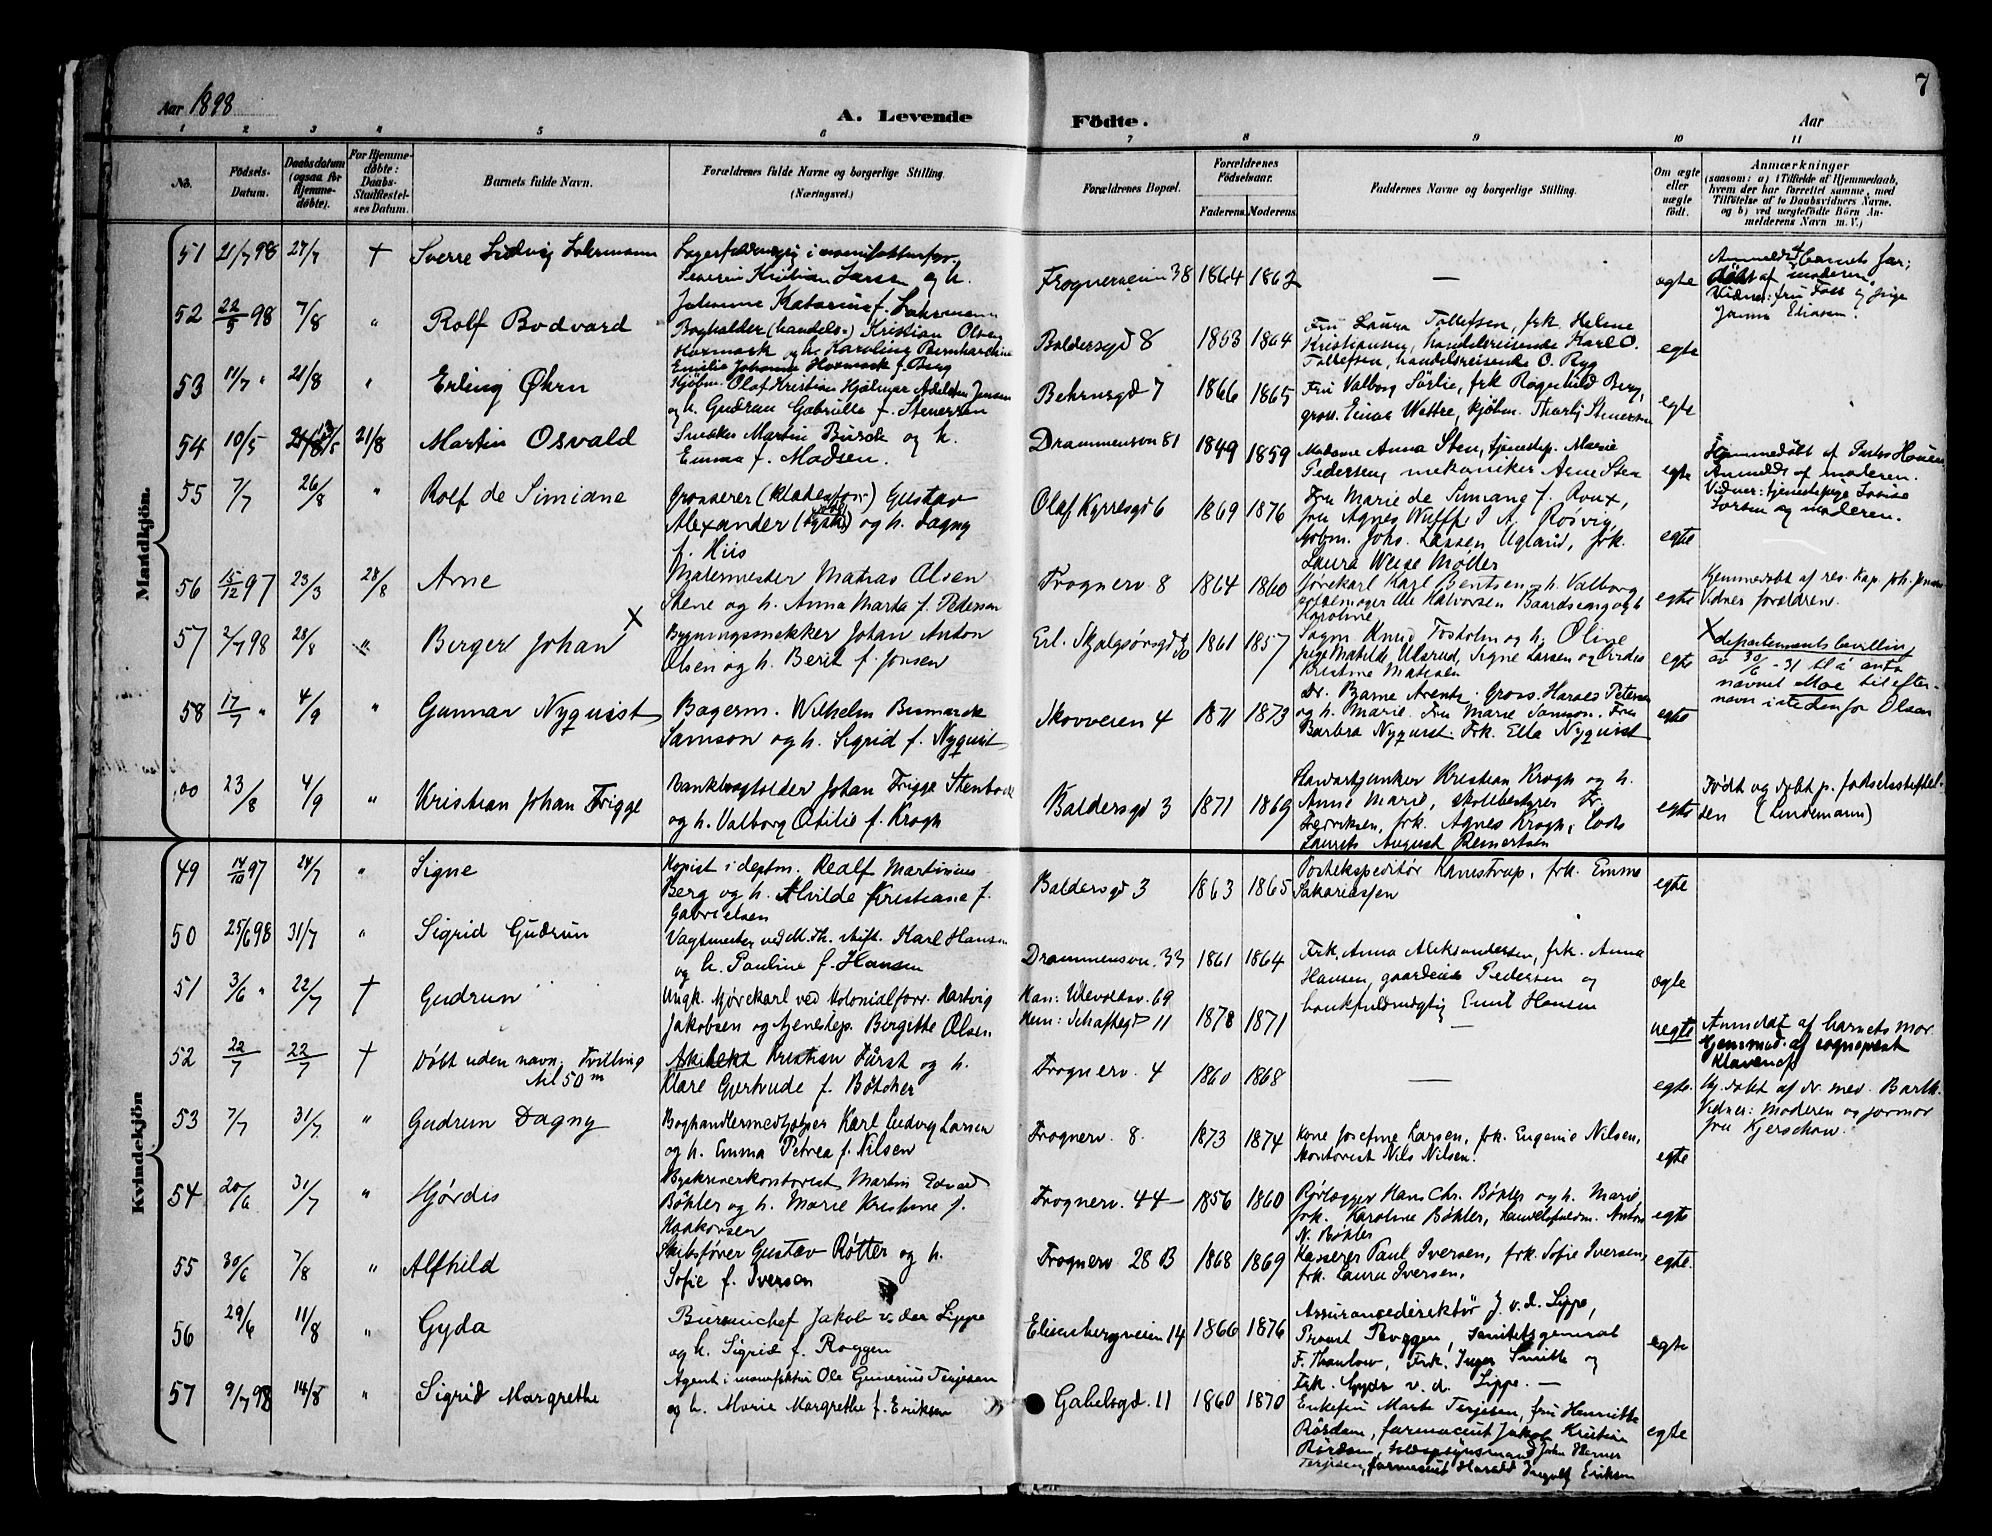 7
Aar 1898
A. Levende Födte.
Aar
1 2 3 4 5 6 7 8 9 10 11
No.
Födsels-Datum.
Daabsdatum (ogsaa for Hjemme-døbte).
For Hjemme-døbte: Daabs-Stadfæstel-ses Datum.
Barnets fulde Navn.
Forældrenes fulde Navne og borgerlige Stilling. (Næringsvei.)
Forældrenes Bopæl.
Forældrenes Födselsaar.
Faderens. Moderens.
Faddernes Navne og borgerlige Stilling.
Om ægte eller uægte födt.
Anmærkninger
(saasom: a) i Tilfælde af Hjemmedaab, hvem der har forrettet samme, med Tilføielse af to Daabsvidners Navne, og b) ved uægtefödte Börn An-melderens Navn m. V.)
Mandkjön.
51 21/7 98 27/7 † Sverre Ludvig
Severin Kristian Larsen og h.
Johanne Katarina f.
Frognerveien 38 1864 1862 — egte
52 22/5 98 7/8 " Rolf Bodvard
Bogholder (handels-) Kristian Olsen
Hoxmark og h. Karoline Bernhardine
Emilie Johanne Hoxmark f. Berg
Baldersgd 8 1853 1864
Fru Laura Tollefsen, frk. Helene
Kristiansen, handelsreisende Karl O.
Tollefsen, handelsreisende O. Ryg
egte
53 11/7 " 21/8 " Erling Øhrn
Kjøbm. Olaf Kristian Hjalmar Jensen
og h. Gudrun Gabrielle f. Stenersen
Behrnsgd 7 1866 1865
Fru Valborg Sörlie, frk Ragnhild Berg,
gross. Einar Wattne, kjöbm. Tharlf Stenersen
egte
54 10/5 21/8 Martin Osvald
Snekker Martin Busch og h.
Emma f. Madsen.
Drammensvn 81 1849 1859
Madame Anna Sten, tjenestep. Marie
Pedersen, mekaniker Arne Sten
egte
Hjemmedöbt af
Anmeldt af moderen.
Vidner: tjenestepige Lovise
Larsen og moderen.
55 7/7 26/8 " Rolf de Simiane
Grosserer Gustav
Alexander og h. Dagny
f. Hiis
Olaf Kyrresgd 6 1869 1876
Fru Marie de Simiane f. Roux,
fru Agnes Wulff, I. A. Roisvig,
Kobm. Johs. Lassen Ugland, frk.
Laura Weise Møller
egte
56 15/12 97 23/3 28/8 Arne
Malermester Matias Olsen
Stene og h. Anna Marta f. Peterson
Frognerv 8 1864 1860
Kjørekarl Karl Bentsen og h. Valborg
Ole Halvorsen
Karoline
egte
Hjemmedøbt af res. kap. Joh. Jensen
Vidner forældrene.
57 2/7 98 28/8 " Birger Johan X
Bygningssnekker Johan Anton
Olsen og h. Berit f. Jonsen
Erl. Skjalgsønsgd 30 1861 1857
Sagm. Knud Fosholm og h. Oline
pige Matilde Ulsrud, Signe Larsen og
Kristine Matisen
egte
X departements bevilling
av 30/6 -31 til å anta
navnet Moe til efter-
navn istedenfor Olsen
58 17/7 " 4/9 " Gunnar Nyquist
Bagerm. Wilhelm Bismarck
Samson og h. Sigrid f. Nyquist
Skovveien 4 1871 1873
Dr. Barne Arentz. Gross. Harald Petersen
og h. Marie. Fru Marie Samson. Fru
Barbra Nyquist. Frk. Ella Nyquist
egte
23/8 4/9 " Kristian Johan Frigge
Bankbogholder Johan Frigge Stenbock
og h. Valborg Otilie f. Krogh
Baldersgd 3 1871 1869
Kristian Krogh og h.
Anne Marie, skolebestyrer Fr.
Fredriksen, frk. Agnes Krogh, Lods
Laurits August Reinertsen
egte
Født og døbt p. fødselsstiftel-
sen (Lindemann)
Kvindekjön
49 14/10 97 24/7 " Signe
Kopist i deptm. Realf Martinius
Berg og h. Alvilde Kristiane f.
Gabrielsen
Baldersgd 3 1863 1865
Postekspeditör Kanestrup, frk. Emma
Sakariassen
egte
50 25/6 98 31/7 " Sigrid Gudrun
Vagtmester ved M. Th. stift. Karl Hansen
og h. Pauline f. Hansen
Drammensvn. 33 1861 1864
Frk. Anna Aleksandersen, frk. Anna
Hansen, Pedersen og
bankfuldmægtig Emil Hansen
egte
51 3/6 " 22/7 † Gudrun
Ungk. kjørekarl ved kolonialforr. Hartvig
Jakobsen og tjenestep. Birgitte Olsen
Han: Ulevoldsv. 69
Hun: Schaftegd 11
1878 1871 — uegte
Anmeldt af barnets mor.
Hjemmed. af sogneprest
Klaveness
52 22/7 22/7 † Døbt uden navn, Tvilling
til 50m
Arkitekt Kristian Fürst og h.
Klare Gjertrude f. Bötcher
Frognerv. 4 1860 1868 — egte.
Hj. døbt af dr. med. Barth.
Vidner: Moderen og jormor
fru Kjerschow.
53 7/7 31/7 " Gudrun Dagny
Boghandlermedhjælper Karl Ludvig Larsen
og h. Emma Petrea f. Nilsen
Frognerv. 8. 1873 1874
Kone Josefine Larsen, frk. Eugenie Nilsen,
Kontorist Nils Nilsen.
egte
54 20/6 31/7 " Hjørdis
Byskriverkontorist Martin Edvard
Bøkler og h. Marie Kristine f.
Haakonsen
Frognerv. 44 — 1856 1860
Rørlægger Hans Chr. Bøkler og h. Marie,
frk. Karoline Bøkler, Anton
N. Bøkler
egte
55 30/6 7/8 " Alfhild
Skibsfører Gustav Røtter og h.
Sofie f. Iversen
Frognerv 28 B 1868 1869
Kasserer Paul Iversen, frk. Sofie Iversen,
frk. Laura Iversen.
egte.
56 29/6 11/8 " Gyda
Bureauchef Jakob v. der Lippe
og h. Sigrid f. Roggen
Elisenbergveien 14 1866 1876
Assurancedirektör J. v. d. Lippe,
Provst Roggen, Sanitetsgeneral
F. Thaulow, Frk. Inger Smith og
Frk. Gyda v. d. Lippe. —
egte
57 9/7 98 14/8 " Sigrid Margrethe
Agent i manufaktur Ole Gunerius Terjesen
og h. Marie Margrethe f. Eriksen
Gabelsgd. 11 1860 1870
Enkefru Marte Terjesen, fru Henriette
Rørdam, farmaceut Jakob Kristian
Rørdam, John Herner
Terjesen, farmaceut Harald Ingolf Eriksen
egte